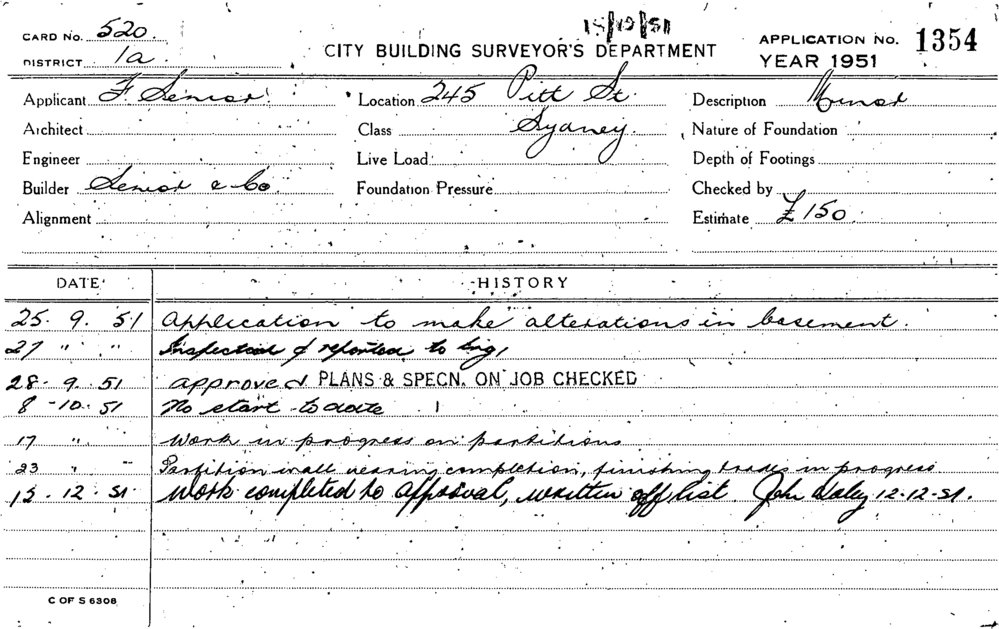 15/12/51
CARD No. 520.
DISTRICT 1a
CITY BUILDING SURVEYOR'S DEPARTMENT
APPLICATION No. 1354
YEAR 1951
Applicant F. Senior
Location 245 Pitt St.
Description Minor
Architect
Class Sydney.
Nature of Foundation
Engineer
Live Load
Depth of Footings
Builder Senior & Co
Foundation Pressure
Checked by
Alignment
Estimate £150
DATE HISTORY
25. 9. 51 Application to make alterations in basement.
27 " " Inspected & reported to Eng,
28. 9. 51 approved PLANS & SPECN. ON JOB CHECKED
8 -10. 51 No start to date
17 " Work in progress on partitions
23 " " Partition wall nearing completion, finishing trades in progress
15. 12. 51. Work completed to approval, written off list. John Daley 12.12.51.
C OF S 6308